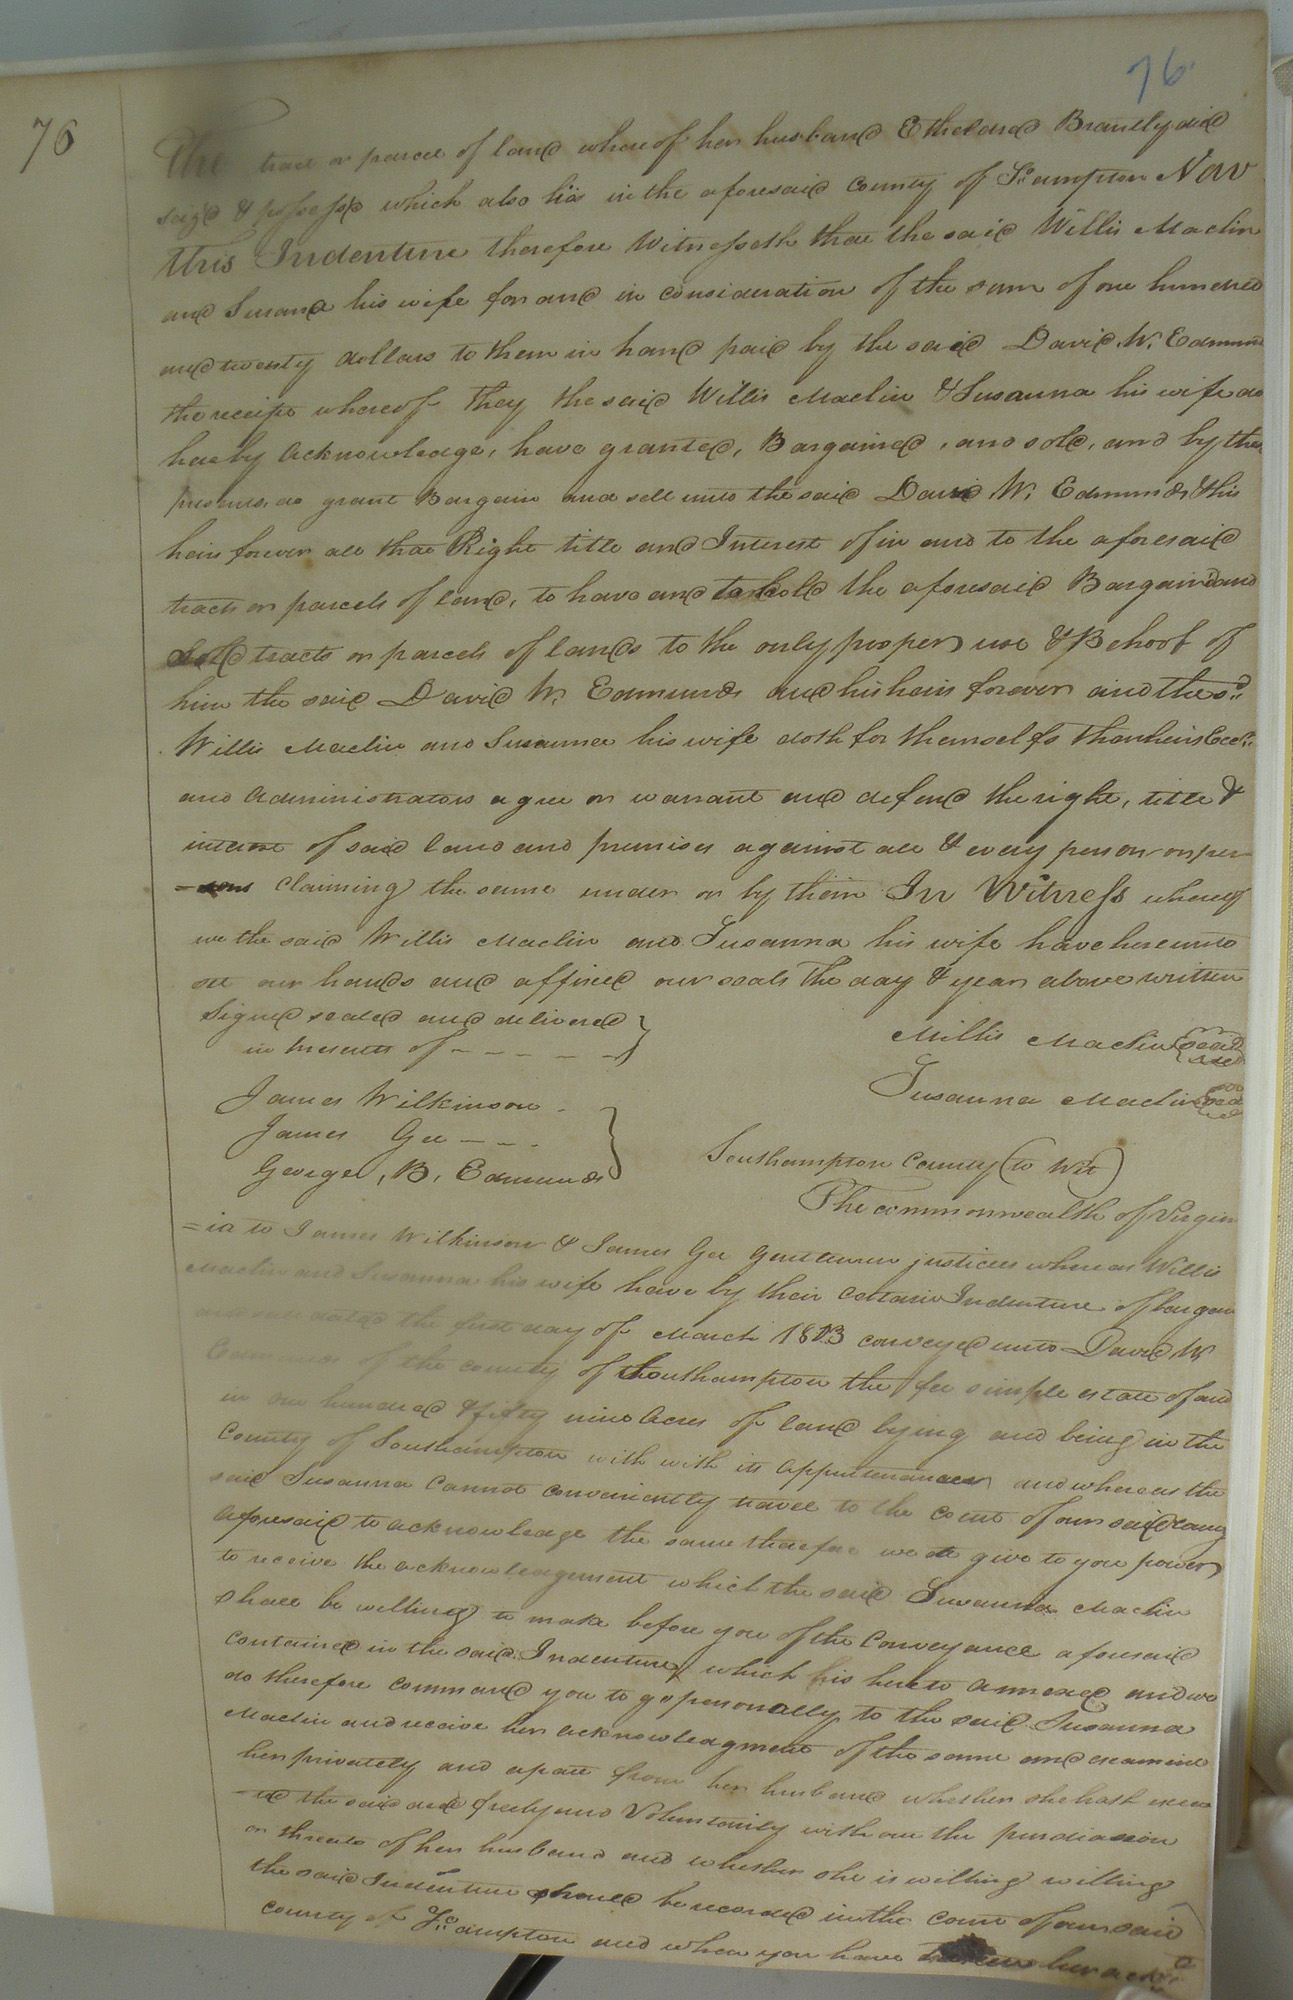 76
76
The tract or parcel of land whereof her husband Etheldred Brantly died
seiz'd & possess'd which also lies in the aforesaid County of So:ampton Now
this Indenture therefore Witnesseth that the said Willis Maclin
and Susana his wife for and in consideration of the sum of one hundred
and twenty dollars to them in hand paid by the said David W. Edmund
the receipt whereof they the said Willis Maclin & Susanna his wife do
hereby acknowledge, have granted, Bargained, and sold, and by these
presents, do grant Bargain and sell unto the said David W. Edmunds & his
heirs forever all that Right title and Interest of in and to the aforesaid
tracts or parcels of land, to have and to hold the aforesaid Bargaind and
Sold tracts or parcels of lands to the only proper use & Behoof of
him the said David W. Edmunds and his heirs forever and the sd.
Willis Maclin and Susanna his wife doth for themselfs their heirs Exers.
and administrators agree or warrant and defend the right, title &
interest of said land and premises against all & every person or per
=sons claiming the same under or by them In Witness whereof
we the said Willis Maclin and Susanna his wife have hereunto
set our hands and affixed our seals the day & year above written
Signed sealed and delivered
in presents of - - - - -
Willis Maclin seal
Susanna Maclin seal
James Wilkinson.
James Gee - - -
George, B, Edmunds
Southampton County (to Wit)
The commonwealth of Virgin
=ia to James Wilkinson & James Gee Gentlemen justices whereas Willis
Maclin and Susanna his wife have by their certain Indenture of bargain
and sale dated the first day of March 1813 conveyed unto David W
Edmunds of the county of Southampton the fee simple estate of and
in one hundred & fifty nine acres of land lying and being in the
County of Southampton with with its appurtenances and whereas the
said Susanna cannot conveniently travel to the court of our said county
aforesaid to acknowledge the same therefore we do give to you power
to receive the acknowledgement which the said Susanna Maclin
shall be willing to make before you of the Conveyance aforesaid
contained in the said Indenture which his hereto annexed and we
do therefore command you to go personally to the said Susanna
Maclin and receive her acknowledgment of the same and examine
her privately and apart from her husband whether she hath execu
=ted the said deed freely and Voluntarily without the perdiasion
or threats of her husband and whether she is willing willing
the said Indenture should be recorded in the court of our said
county of So:ampton and when you have her ack